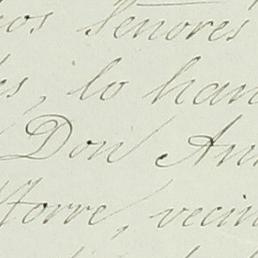 los Señores
lo han
Don Ant
Torre, vecin